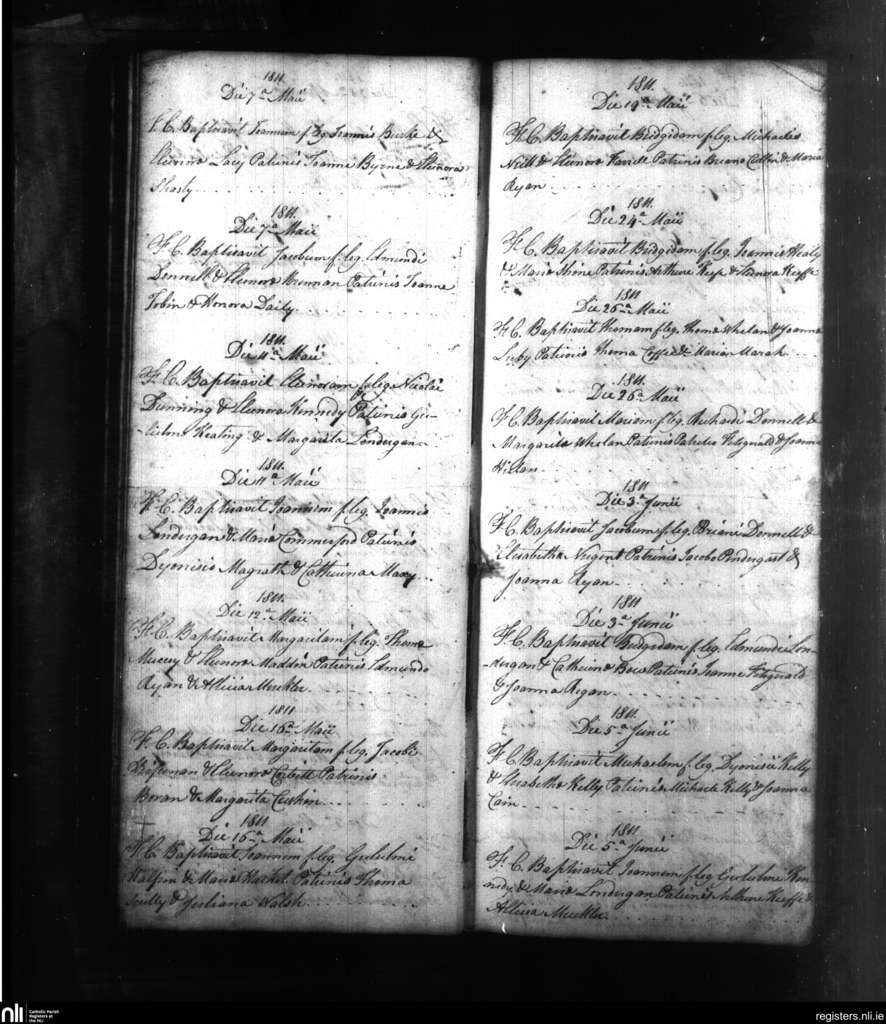 1811.
Die 7ª Maii
F. C. Baptisavit Joannem f. leg. Joannis Burke &
Elenora Lacy Patrinis Joanne Byrne & Elenora
Shorly
1811.
Die 7ª Maii
F. C. Baptisavit Jacobum f. leg. Edmundi
Donnell & Elenora Brennan Patrinis Joanne
Tobin & Honora Daily
1811.
Die 11ª Maii
F. C. Baptisavit Elenoram f. lega Nicolai
Dunning & Elenora Kennedy Patrinis Gu-
-lielmo Keating & Margarita Londergan
1811.
Die 11ª Maii
F. C. Baptisavit Joannem f. leg. Joannis
Londergan & Maria Commerford Patrinis
Dyonisio Magrath & Catherina Maxy
1811.
Die 12ª Maii
F. C. Baptisavit Margaritam f. leg. Thoma
& Elenora Madden Patrinis Edmundo
Ryan & Alicia Meckler
1811
Die 16ª Maii
F. C. Baptisavit Margaritam f. leg. Jacobi
& Elenora Corbett Patrinis
Boran & Margarita
1811
Die 16ª Maii
F. C. Baptisavit Joannem f. leg. Gulielmi
Halpin & Maria Patrinis Thoma
Scully & Juliana Walsh
1811.
Die 19ª Maii
F. C. Baptisavit Bridgidam f. leg. Michaelis
Neill & Elenora Farrell Patrinis Briano Cullin & Maria
Ryan
1811.
Die 24ª Maii
F. C. Baptisavit Bridgidam f. leg. Joannis Healy
& Maria Shine Patrinis Arthuro Keefe & Elenora Keeffe
1811
Die 26ª Maii
F. C. Baptisavit Thomam f. leg. Thoma Whelan & Joanna
Luby Patrinis Thoma Coffee & Maria Marah
1811.
Die 26ª Maii
F. C. Baptisavit Mariam f. leg. Richardi Donnell &
Margarita Whelan Patrinis Patricio Fitzgerald & Joanna
1811
Die 3ª Junii
F. C. Baptisavit Jacobum f. leg. Briani Donnell &
Elisabetha Nugent Patrinis Jacobo Pendergast &
Joanna Ryan
1811
Die 3ª Junii
F. C. Baptisavit Bridgidam f. leg. Edmundi Lon-
-dergan & Catherina Patrinis Joanne Fitzgerald
& Joanna Regan
1811.
Die 5ª Junii
F. C. Baptisavit Michaelem f. leg. Dyonisii Kelly
& Elisabetha Kelly Patrinis Michaele Kelly & Joanna
Cain
1811
Die 5ª Junii
F. C. Baptisavit Joannem f. leg. Gulielmi Ken-
nedy & Maria Londergan Patrinis Arthuro Keeffe &
Alicia Meckler
nli
Catholic Parish
Registers at
the NLI
registers.nli.ie